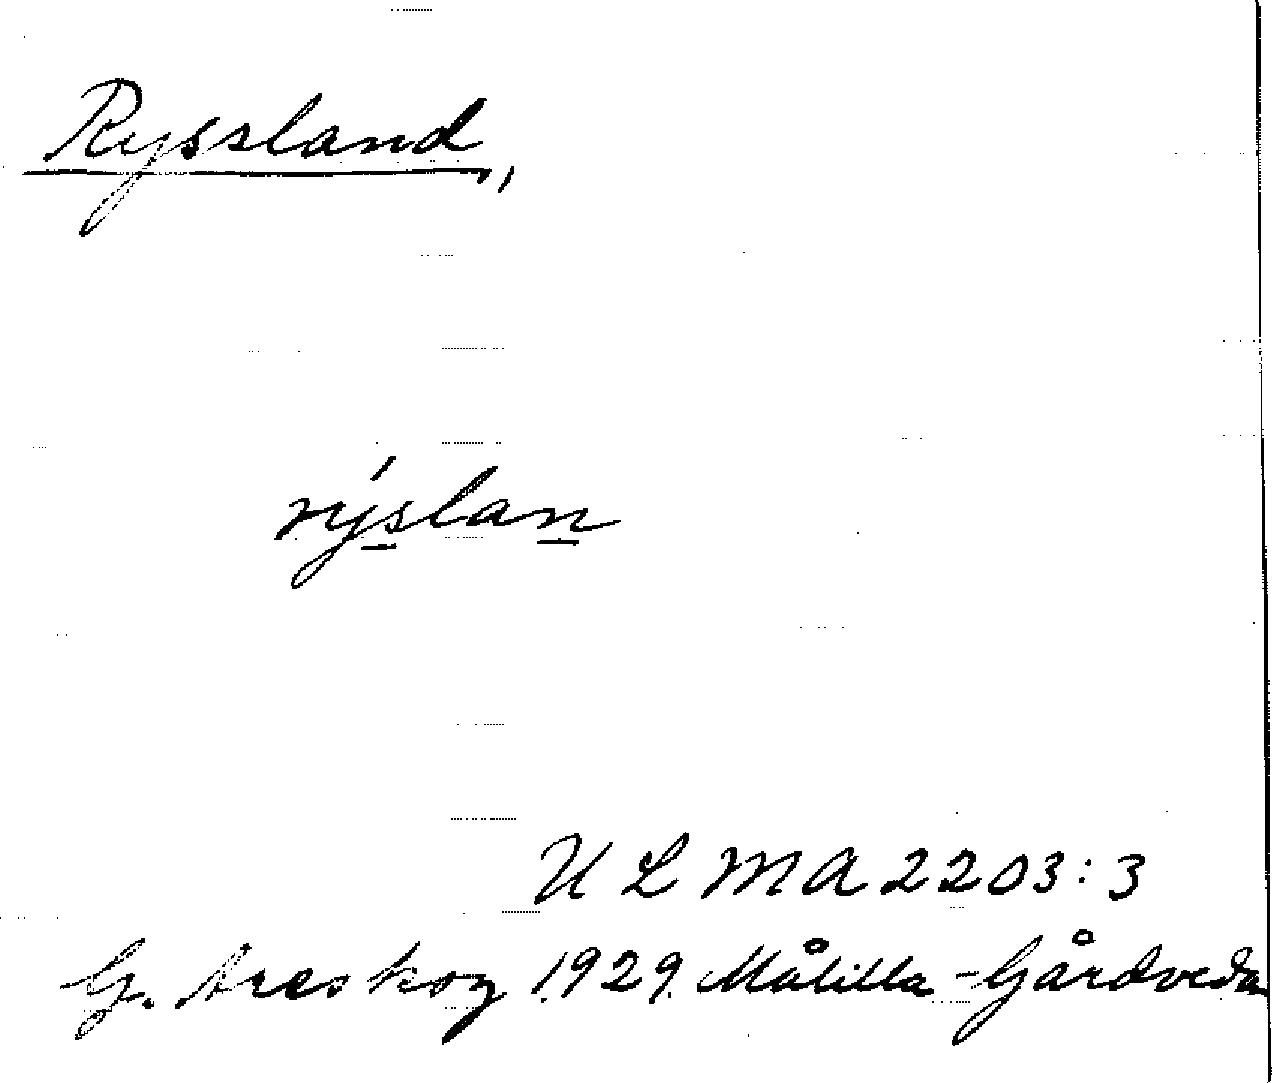 Ryssland,
rýslan
ULMA 2203:3
G. Areskog 1929. Målilla-Gårdveda